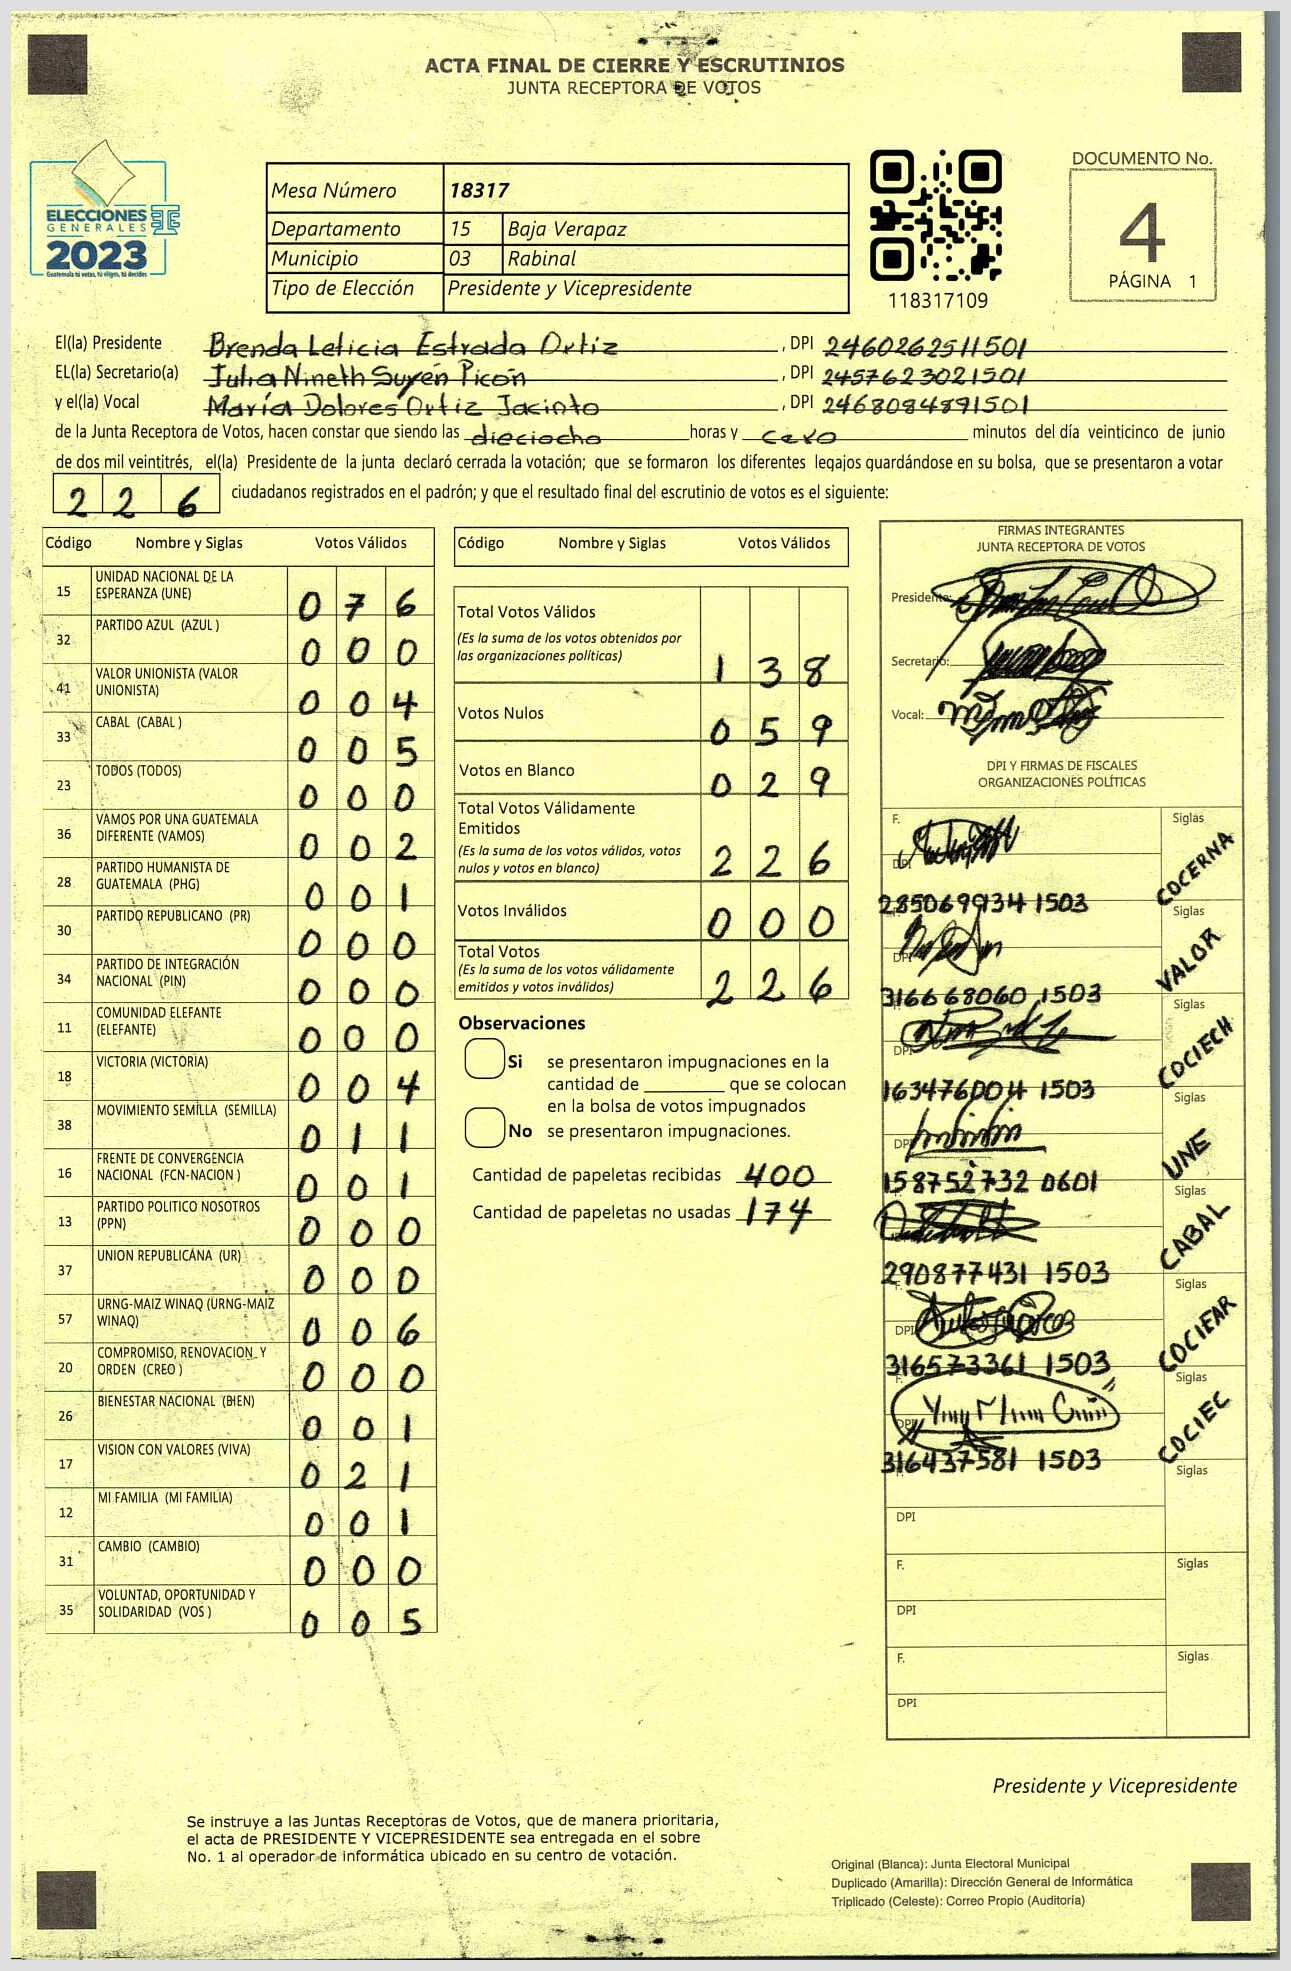 ACTA FINAL DE CIERRE Y ESCRUTINIOS
JUNTA RECEPTORA DE VOTOS
ELECCIONES
GENERALES
2023
Guatemala tú votas, tú eliges, tú decides
Mesa Número 18317
Departamento 15 Baja Verapaz
Municipio 03 Rabinal
Tipo de Elección Presidente y Vicepresidente
118317109
DOCUMENTO No.
4
PÁGINA 1
El(la) Presidente Brenda Leticia Estrada Ortiz, DPI 2460262511501
EL(la) Secretario(a) Julia Nineth Suyén Picón, DPI 2457623021501
y el(la) Vocal María Dolores Ortiz Jacinto, DPI 2468084891501
de la Junta Receptora de Votos, hacen constar que siendo las dieciocho horas y cero minutos del día veinticinco de junio
de dos mil veintitrés, el(la) Presidente de la junta declaró cerrada la votación; que se formaron los diferentes legajos guardándose en su bolsa, que se presentaron a votar
226 ciudadanos registrados en el padrón; y que el resultado final del escrutinio de votos es el siguiente:
Código Nombre y Siglas Votos Válidos
15 UNIDAD NACIONAL DE LA ESPERANZA (UNE) 076
32 PARTIDO AZUL (AZUL ) 000
41 VALOR UNIONISTA (VALOR UNIONISTA) 004
33 CABAL (CABAL ) 005
23 TODOS (TODOS) 000
36 VAMOS POR UNA GUATEMALA DIFERENTE (VAMOS) 002
28 PARTIDO HUMANISTA DE GUATEMALA (PHG) 001
30 PARTIDO REPUBLICANO (PR) 000
34 PARTIDO DE INTEGRACIÓN NACIONAL (PIN) 000
11 COMUNIDAD ELEFANTE (ELEFANTE) 000
18 VICTORIA (VICTORIA) 004
38 MOVIMIENTO SEMILLA (SEMILLA) 011
16 FRENTE DE CONVERGENCIA NACIONAL (FCN-NACION ) 001
13 PARTIDO POLITICO NOSOTROS (PPN) 000
37 UNION REPUBLICANA (UR) 000
57 URNG-MAIZ WINAQ (URNG-MAIZ WINAQ) 006
20 COMPROMISO, RENOVACION Y ORDEN (CREO ) 000
26 BIENESTAR NACIONAL (BIEN) 001
17 VISION CON VALORES (VIVA) 021
12 MI FAMILIA (MI FAMILIA) 001
31 CAMBIO (CAMBIO) 000
35 VOLUNTAD, OPORTUNIDAD Y SOLIDARIDAD (VOS ) 005
Código Nombre y Siglas Votos Válidos
Total Votos Válidos
(Es la suma de los votos obtenidos por
las organizaciones políticas) 138
Votos Nulos 059
Votos en Blanco 029
Total Votos Válidamente
Emitidos
(Es la suma de los votos válidos, votos
nulos y votos en blanco) 226
Votos Inválidos 000
Total Votos
(Es la suma de los votos válidamente
emitidos y votos inválidos) 226
Observaciones
Si se presentaron impugnaciones en la
cantidad de ________ que se colocan
en la bolsa de votos impugnados
No se presentaron impugnaciones.
Cantidad de papeletas recibidas 400
Cantidad de papeletas no usadas 174
FIRMAS INTEGRANTES
JUNTA RECEPTORA DE VOTOS
Presidente:
Secretario:
Vocal:
DPI Y FIRMAS DE FISCALES
ORGANIZACIONES POLÍTICAS
F. Siglas
DPI 285069934 1503 COCERNA
Siglas
DPI 316668060 1503 VALOR
Siglas
DPI 163476004 1503 COCIECH
Siglas
DPI 158752732 0601 UNE
Siglas
290877431 1503 CABAL
F. Siglas
DPI 316573361 1503 COCIEAR
F. Siglas
DPI 316437581 1503 COCIEC
F. Siglas
DPI
F. Siglas
DPI
F. Siglas
DPI
Presidente y Vicepresidente
Se instruye a las Juntas Receptoras de Votos, que de manera prioritaria,
el acta de PRESIDENTE Y VICEPRESIDENTE sea entregada en el sobre
No. 1 al operador de informática ubicado en su centro de votación.
Original (Blanca): Junta Electoral Municipal
Duplicado (Amarilla): Dirección General de Informática
Triplicado (Celeste): Correo Propio (Auditoría)